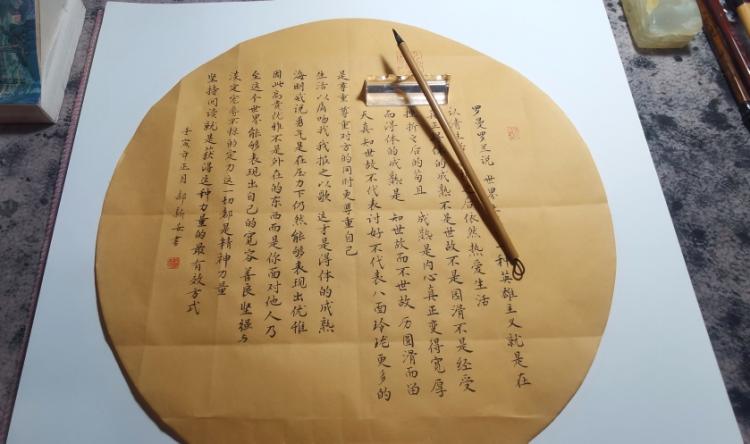 罗曼罗兰说 世界 种英雄主义就是在
认清 后依然热爱生活
的成熟不是世故不是圆滑不是经受
挫折之后的苟且 成熟是内心真正变得宽厚
而得体的成熟是 知世故而不世故 历圆滑而留
天真知世故不代表讨好不代表八面玲珑更多的
是尊重尊重对方的同时更尊重自己
生活以痛吻我我报之以歌 这才是得体的成熟
海明威说勇气是在压力下仍然能够表现出优雅
因此高贵优雅不是外在的东西而是你面对他人乃
至这个世界能够表现出自己的宽容 善良坚强与
淡定宠辱不惊的定力这一切都是精神力量
坚持阅读就是获得这种力量的最有效方式
壬寅年正月 郝新安书